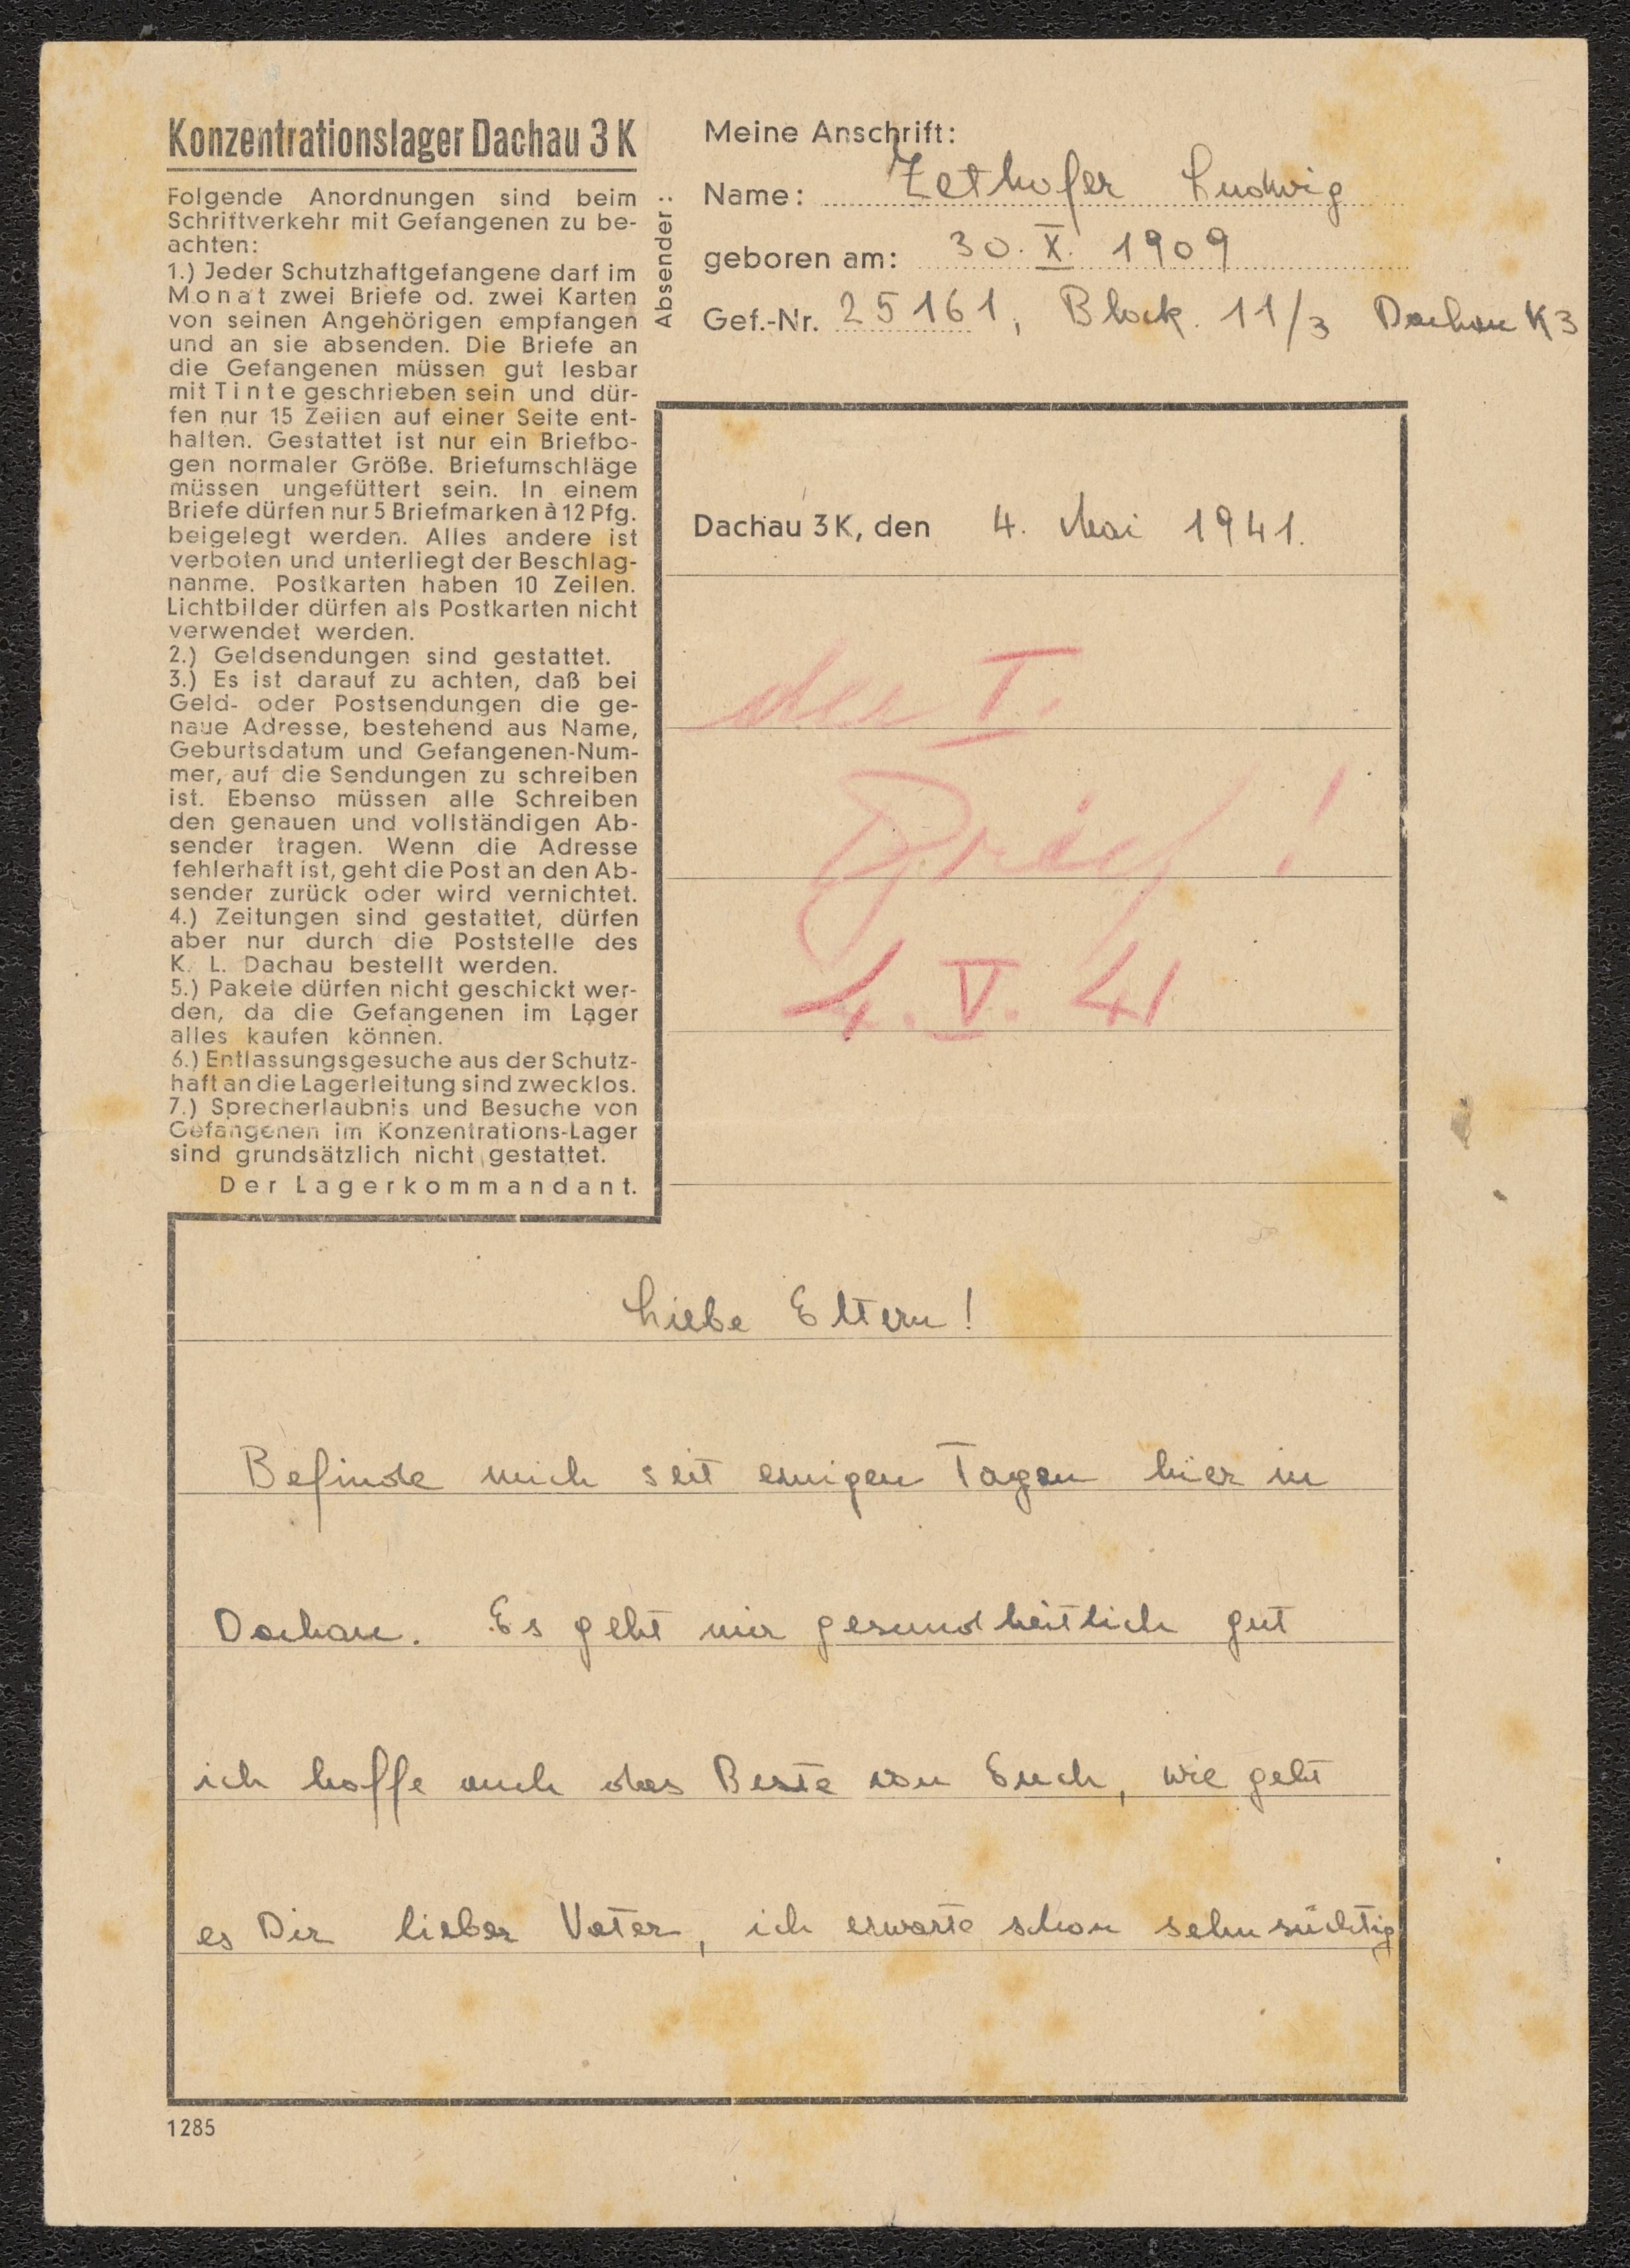 Konzentrationslager Dachau 3 K
Folgende Anordnungen sind beim
Schriftverkehr mit Gefangenen zu be-
achten:
1.) Jeder Schutzhaftgefangene darf im
Monat zwei Briefe od. zwei Karten
von seinen Angehörigen empfangen
und an sie absenden. Die Briefe an
die Gefangenen müssen gut lesbar
mit Tinte geschrieben sein und dür-
fen nur 15 Zeilen auf einer Seite ent-
halten. Gestattet ist nur ein Briefbo-
gen normaler Größe. Briefumschläge
müssen ungefüttert sein. In einem
Briefe dürfen nur 5 Briefmarken à 12 Pfg.
beigelegt werden. Alles andere ist
verboten und unterliegt der Beschlag-
nahme. Postkarten haben 10 Zeilen.
Lichtbilder dürfen als Postkarten nicht
verwendet werden.
2.) Geldsendungen sind gestattet.
3.) Es ist darauf zu achten, daß bei
Geld- oder Postsendungen die ge-
naue Adresse, bestehend aus Name,
Geburtsdatum und Gefangenen-Num-
mer, auf die Sendungen zu schreiben
ist. Ebenso müssen alle Schreiben
den genauen und vollständigen Ab-
sender tragen. Wenn die Adresse
fehlerhaft ist, geht die Post an den Ab-
sender zurück oder wird vernichtet.
4.) Zeitungen sind gestattet, dürfen
aber nur durch die Poststelle des
K. L. Dachau bestellt werden.
5.) Pakete dürfen nicht geschickt wer-
den, da die Gefangenen im Lager
alles kaufen können.
6.) Entlassungsgesuche aus der Schutz-
haft an die Lagerleitung sind zwecklos.
7.) Sprecherlaubnis und Besuche von
Gefangenen im Konzentrations-Lager
sind grundsätzlich nicht gestattet.
Der Lagerkommandant.
Absender:
Meine Anschrift:
Name: Zethofer Ludwig
geboren am: 30. X. 1909
Gef.-Nr. 25161, Block. 11/3 Dachau K3
Dachau 3 K, den 4. Mai 1941.
der I.
Brief!
4. V. 41
Liebe Eltern!
Befinde mich seit einigen Tagen hier in
Dachau. Es geht mir gesundheitlich gut
ich hoffe auch das Beste von Euch, wie geht
es Dir lieber Vater, ich erwarte schon sehnsüchtig
1285